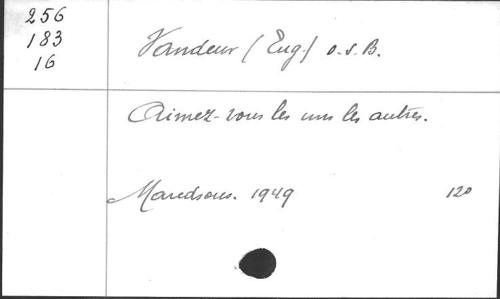 256
183
16
Vandeur (Eug.) o.s.B.
Aimez-vous les uns les autres.
Maredsous. 1949
12°